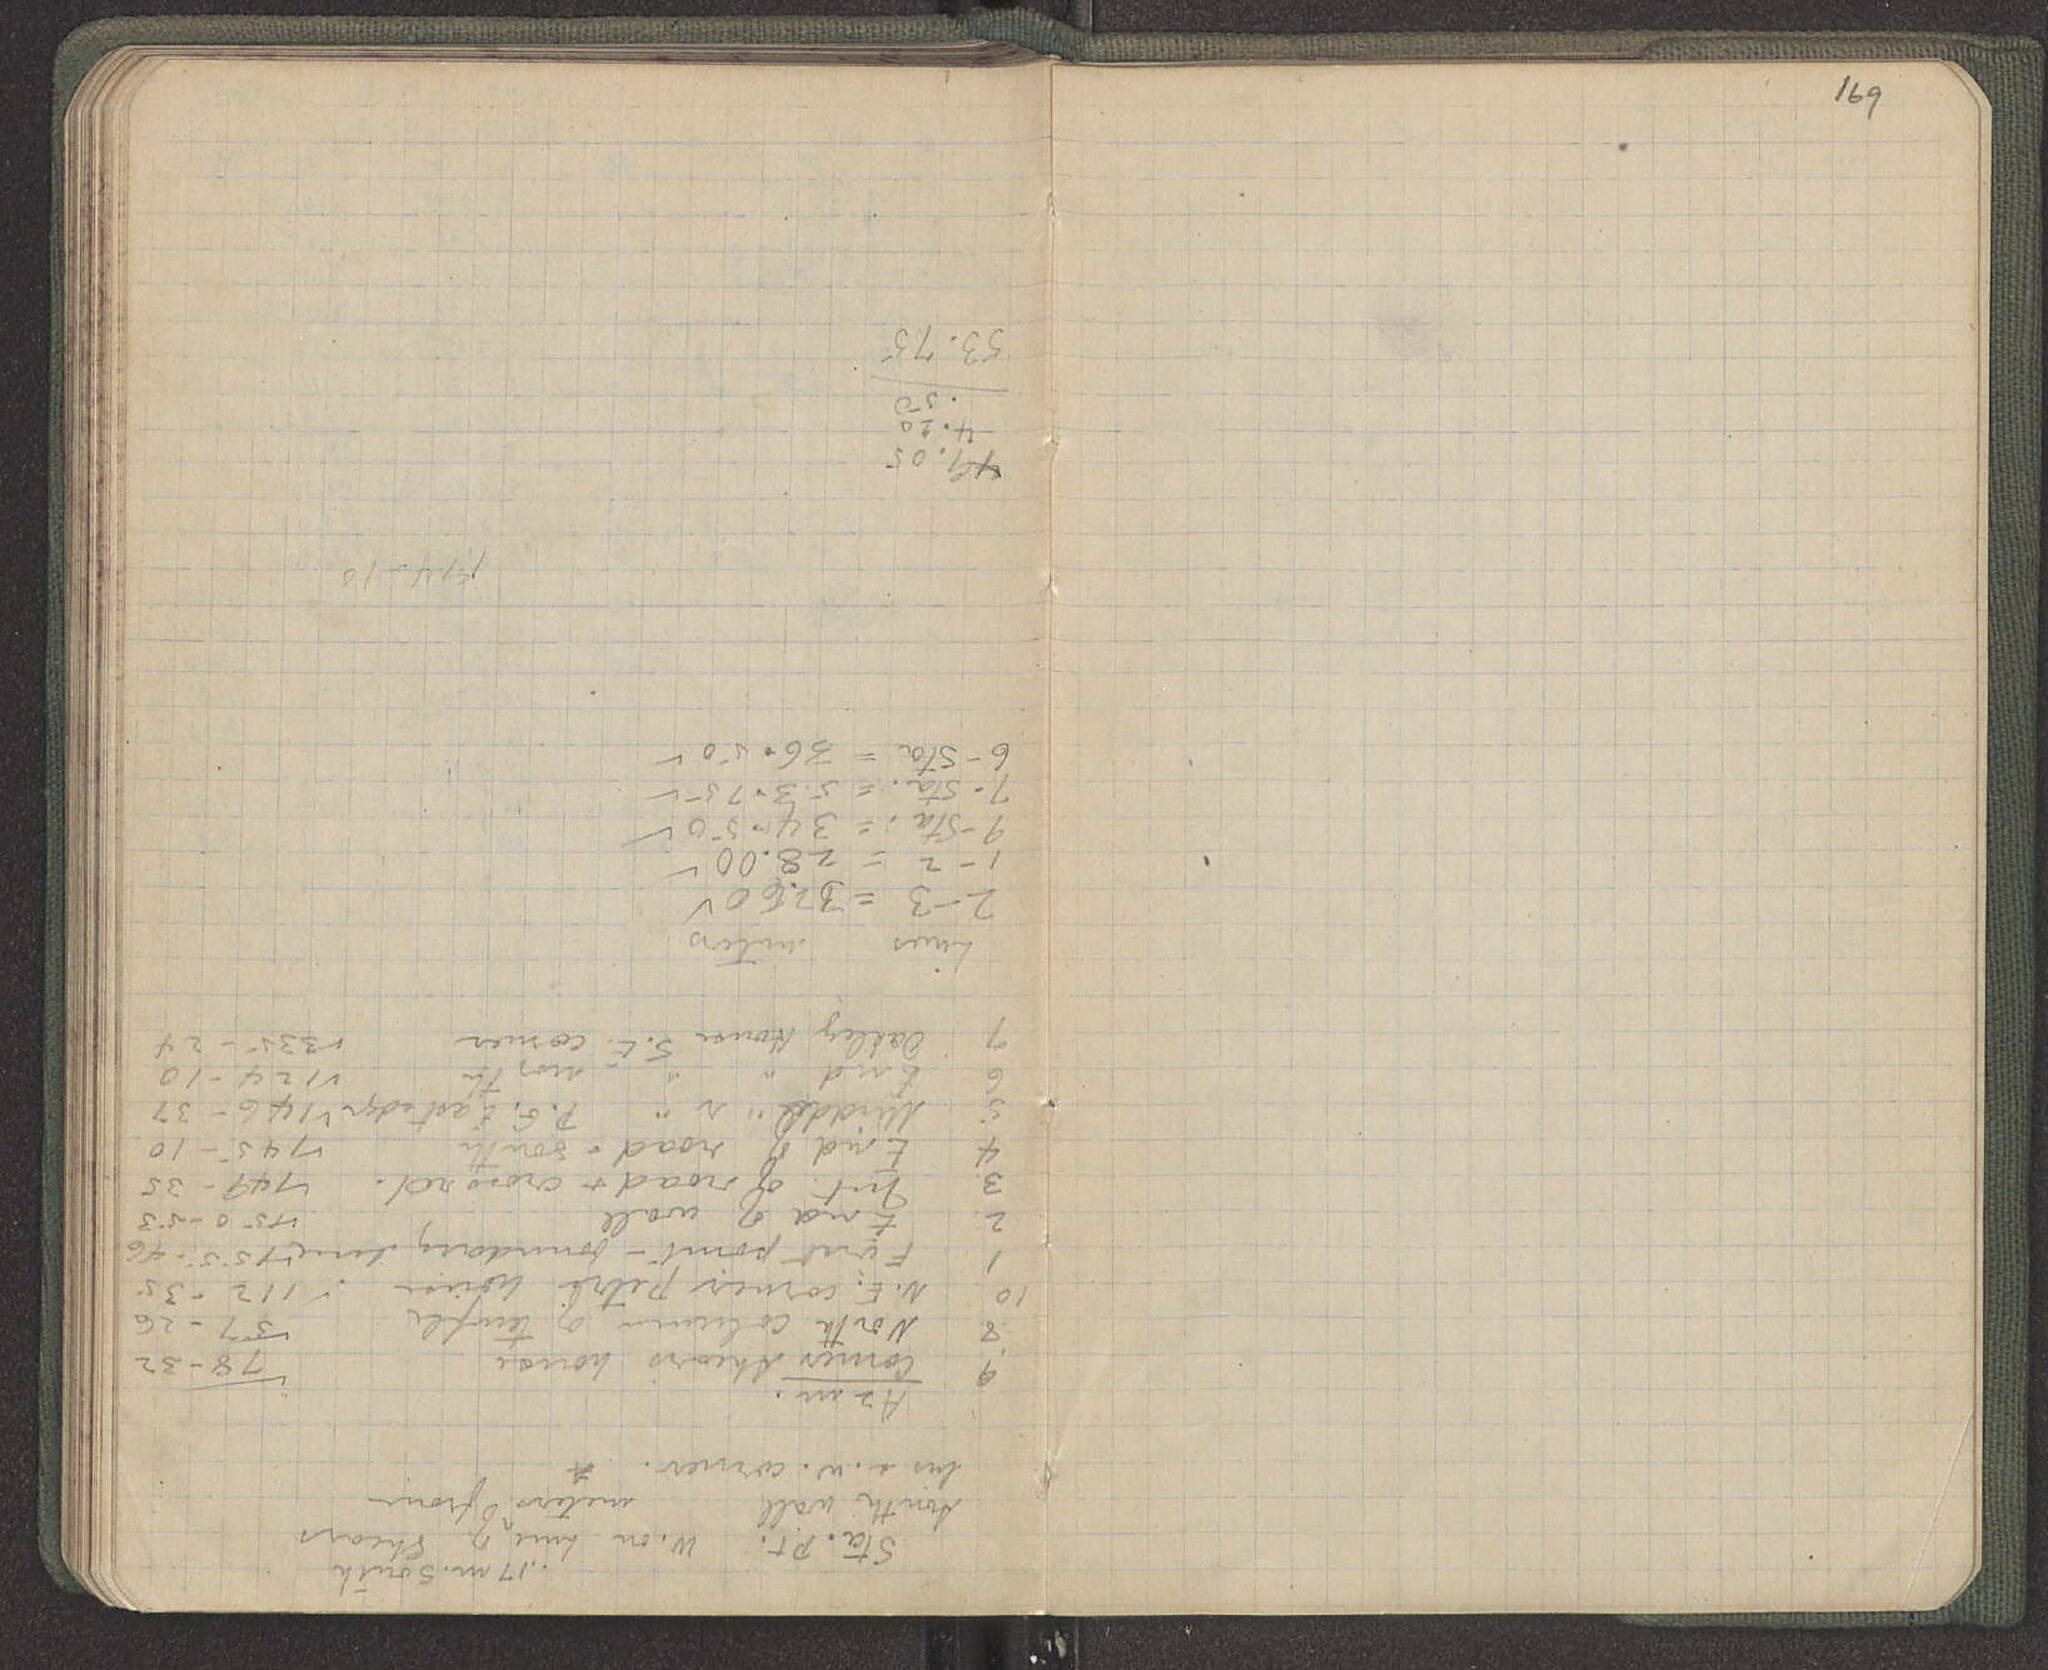 169
.17 m. South
Sta. Pt. W. on line of Shears
North wall meters from
his s.w. corner. *
Azm.
9 Corner Shears house 78-32
8 North column of temple 57-26
10 N.E. corner Petri house 112-35
1 First point - boundary line 155-46
2 End of wall 150-53
3 Int. of road + cross rd. 149-35
4 End of road - South 145-10
5 Middle " " P.G. East edge 146-37
6 End " " - north 124-10
7 Oakley House S.E. corner 335-24
Lines meters
2-3 = 32.60
1-2 = 28.00
9-Sta. = 34.50
7-Sta. = 53.75
6-Sta = 36.50
174-10
49.05
4.20
.50
53.75